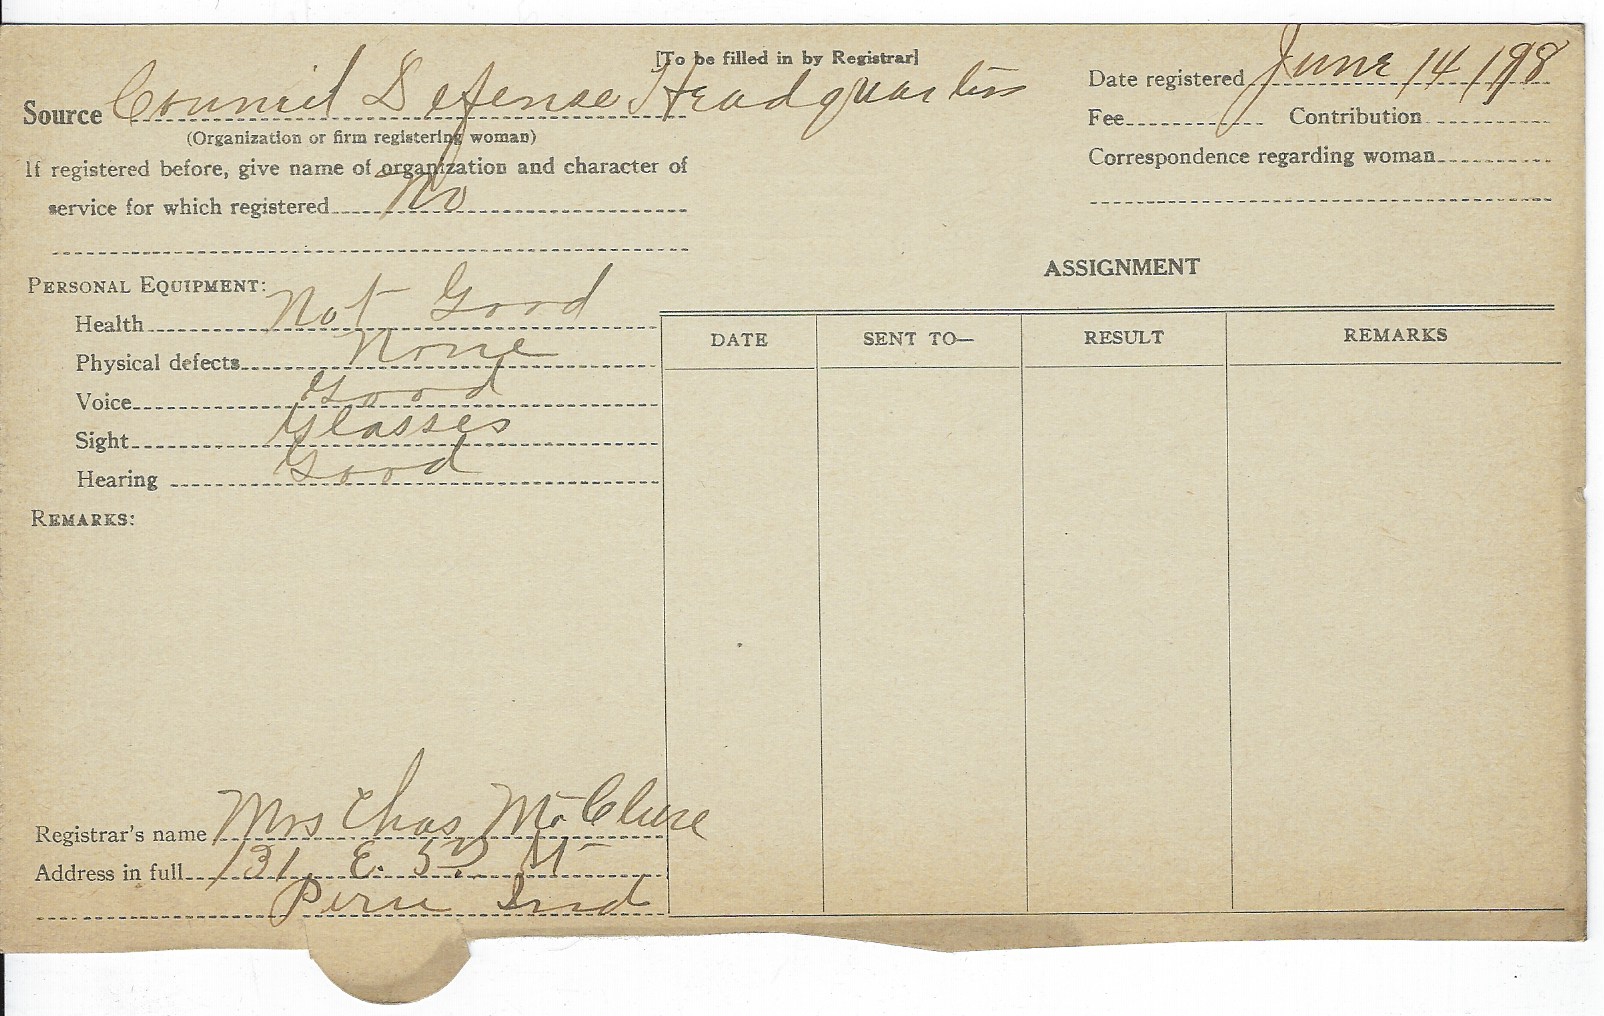 [To be filled in by Registrar]
Source Council Defense Headquarters
(Organization or firm registering woman)
If registered before, give name of organization and character of
service for which registered No
Date registered June 14 1918
Fee Contribution
Correspondence regarding woman
PERSONAL EQUIPMENT:
Health Not Good
Physical defects None
Voice Good
Sight Glasses
Hearing Good
REMARKS:
ASSIGNMENT
DATE SENT TO— RESULT REMARKS
Registrar's name Mrs Chas McClure
Address in full 131 E. 5th St
Peru Ind